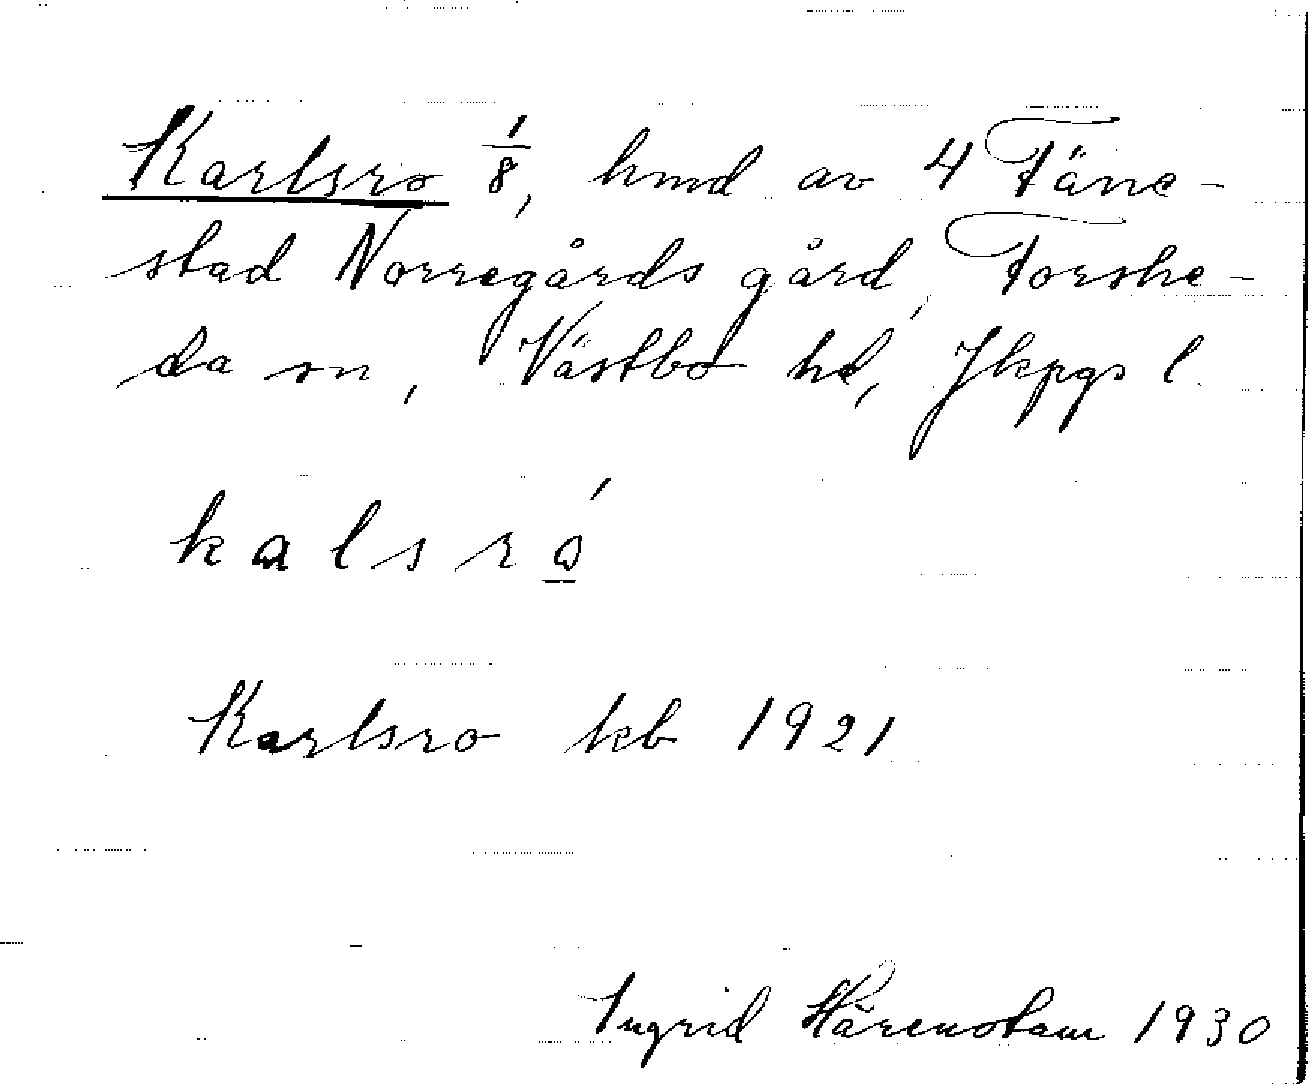 Karlsro 1/8, hmd av 4 Täne-
stad Norregårds gård, Forshe-
da sn, Västbo hd, Jkpgs l.
kalsró
Karlsro kb 1921
Ingrid Härenstam 1930